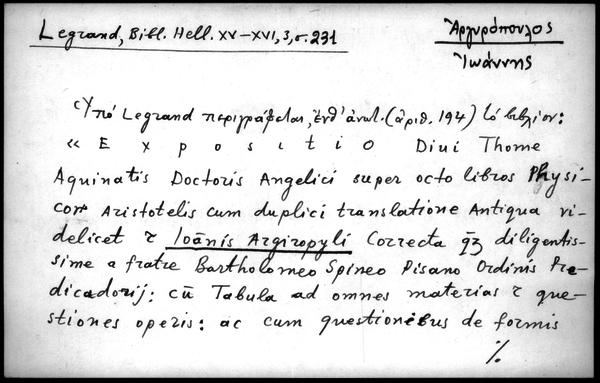 Legrand, Bibl. Hell. XV–XVI, 3, σ. 231
Ἀργυρόπουλος
Ἰωάννης
Ὑπό Legrand περιγράφεται, ἐνθ' ἀνωτ. (ἀριθ. 194) τό βιβλίον:
« E x p o s i t i o Diui Thome
Aquinatis Doctoris Angelici super octo libros Physi-
corr Aristotelis cum duplici translatione Antiqua vi-
delicet τ Ioānis Argiropyli Correcta q̄ʒ diligentis-
sime a fratre Bartholomeo Spineo Pisano Ordinis Pre-
dicadorij: cū Tabula ad omnes materias τ que-
stiones operis: ac cum questionibus de formis
%